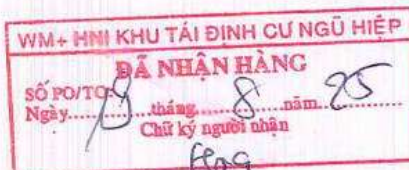 WM+ HNI KHU TÁI ĐỊNH CƯ NGŨ HIỆP
ĐÃ NHẬN HÀNG
SỐ PO/TO
Ngày.......tháng 8 năm 25
Chữ ký người nhận